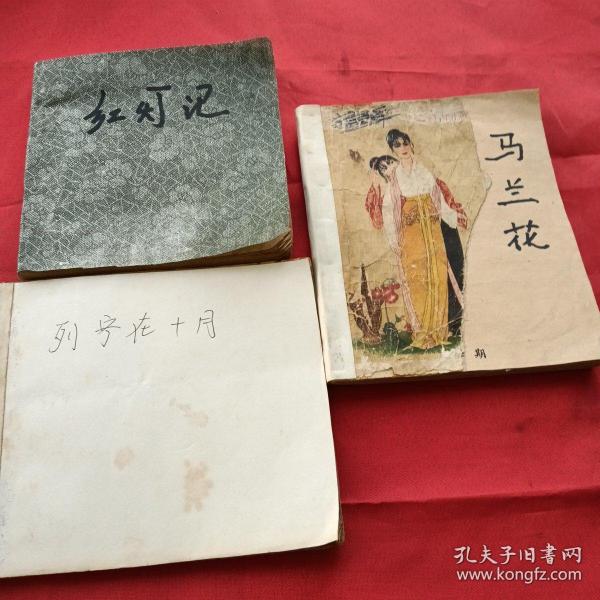 红灯记
马兰花
期
列宁在十月
孔夫子旧书网
www.kongfz.com